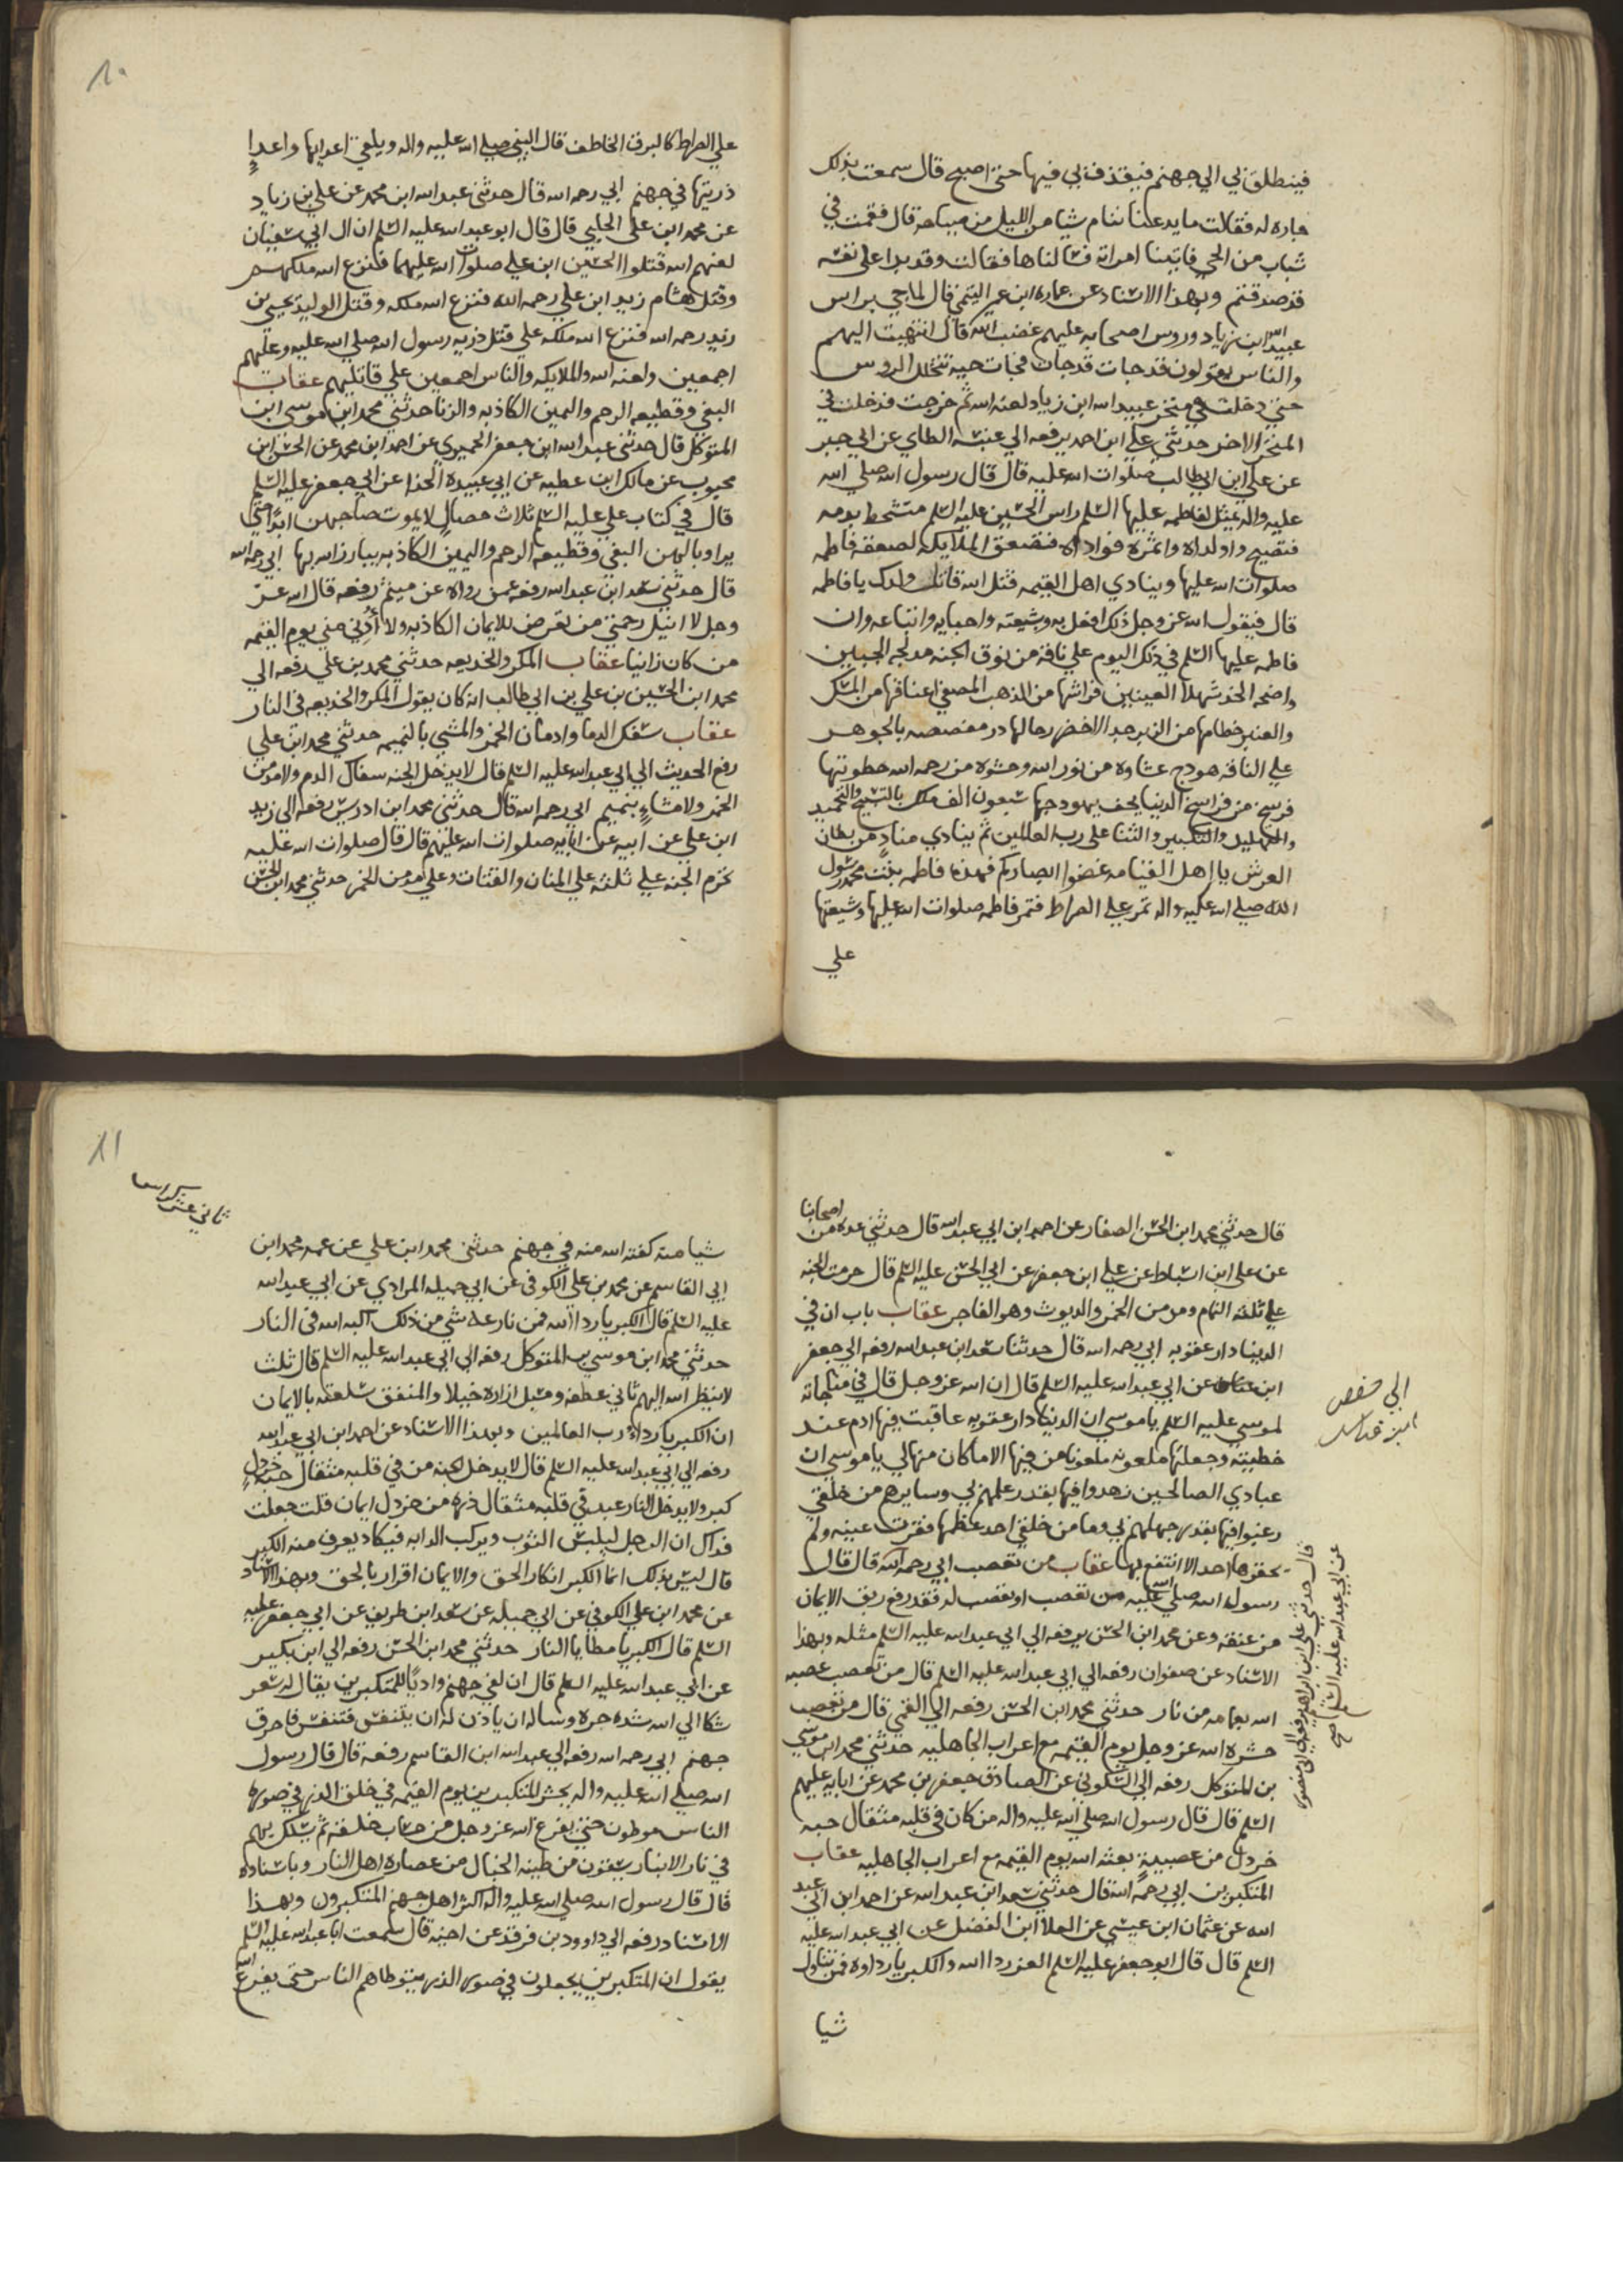 فينطلق بي الي جهنم فيقذف بي فيها حتى اصبح قال سمعت بذلك
جاره له فقالت ما يدعنا ننام شيا من الليل من صياحه قال فقمت في
شباب من الحي فاتينا امراته فسالناها فقالت وقد بدا على نفسه
قد صدقتم وبهذا الاسناد عن عماره ابن عمير التيمي قال لما جي براس
عبيد الله ابن زياد وروس اصحابه عليهم غضب الله قال انتهيت اليهم
والناس يقولون قد جات قد جات فجات حيه تتخلل الروس
حتى دخلت في منخر عبيد الله ابن زياد لعنه الله ثم خرجت فدخلت في
المنخر الاخر حدثني علي ابن احمد يرفعه الي عنبسه الطاي عن ابي جبر
عن علي ابن ابي طالب صلوات الله عليه قال قال رسول الله صلي الله
عليه واله يمثل لفاطمه عليها السلم راس الحسين عليه السلم متشحط بدمه
فتصيح واولداه واثمره فواداه فتصعق الملايكه لصعقه فاطمه
صلوات الله عليها وينادي اهل القيمه قتل الله قاتل ولدك يا فاطمه
قال فيقول الله عز وجل ذلك افعل به وبشيعته واحبايه واتباعه وان
فاطمه عليها السلم في ذلك اليوم علي ناقه من نوق الجنه مدلجه الجبين
واضحه الخد شهلا العينين فراشها من الذهب المصفي اعناقها من المسك
والعنبر خطامها من الزبرجد الاخضر رحالها در مفصصه بالجوهر
علي الناقه هودج غشاوه من نور الله وحشوه من رحمه الله خطوتها
فرسخ من فراسخ الدنيا يحف بهودجها سبعون الف ملك بالتسبيح والتحميد
والتهليل والتكبير والثنا على رب العالمين ثم ينادي مناد من بطنان
العرش يا اهل القيامه غضوا ابصاركم فهذه فاطمه بنت محمد رسول
الله صلي الله عليه واله تمر علي الصراط فتمر فاطمه صلوات الله عليها وشيعتها
علي
١٠
علي الصراط كالبرق الخاطف قال النبي صلي الله عليه واله ويلقي اعدايها واعدا
ذريتها في جهنم ابي رحمه الله قال حدثني عبد الله ابن محمد عن علي بن زياد
عن محمد ابن علي الحلبي قال قال ابو عبد الله عليه السلم ان ال ابي سفيان
لعنهم الله قتلوا الحسين ابن علي صلوات الله عليهما فنزع الله ملكهم
وقتل هشام زيد ابن علي رحمه الله فنزع الله ملكه وقتل الوليد يحيى بن
زيد رحمه الله فنزع الله ملكه علي قتل ذريه رسول الله صلي الله عليه وعليهم
اجمعين ولعنه الله والملايكه والناس اجمعين علي قاتليهم عقاب
البغي وقطيعه الرحم واليمين الكاذبه والزنا حدثني محمد ابن موسى ابن
المتوكل قال حدثني عبد الله ابن جعفر الحميري عن احمد ابن محمد عن الحسن ابن
محبوب عن مالك ابن عطيه عن ابي عبيده الحذا عن ابي جعفر عليه السلم
قال في كتاب علي عليه السلم ثلاث خصال لا يموت صاحبهن ابدا حتى
يرا وبالهن البغي وقطيعه الرحم واليمين الكاذبه يبارز الله بها ابي رحمه الله
قال حدثني سعد ابن عبد الله رفعه عمن رواه عن ميثم رفعه قال الله عز
وجل لا انيل رحمتي من تعرض للايمان الكاذبه ولا أُدْني مني يوم القيمه
من كان زانيا عقاب المكر والخديعه حدثني محمد بن علي رفعه الي
محمد ابن الحسين بن علي بن ابي طالب انه كان يقول المكر والخديعه في النار
عقاب سفك الدما وادمان الخمر والمشي بالنميمه حدثني محمد ابن علي
رفع الحديث الي ابي عبد الله عليه السلم قال لا يدخل الجنه سفاك الدم ولا مدمن
الخمر ولا مشاء بنميم ابي رحمه الله قال حدثني محمد ابن ادريس رفعه الي زيد
ابن علي عن ابيه عن ابايه صلوات الله عليهم قال قال صلوات الله عليه
تحرم الجنه علي ثلثه علي المنان والقتات وعلي مدمن الخمر حدثني محمد ابن الحسن
قال حدثني محمد ابن الحسن الصفار عن احمد ابن ابي عبد الله قال حدثني عده من اصحابنا
عن علي ابن اسباط عن علي ابن جعفر عن ابي الحسن عليه السلم قال حرمت الجنه
علي ثلثه النمام ومدمن الخمر والديوث وهو الفاجر عقاب باب ان في
الدنيا دار عقوبه ابي رحمه الله قال حدثنا سعد ابن عبد الله رفعه الي جعفر
ابن عن ابي عبد الله عليه السلم قال ان الله عز وجل قال في مناجاته
لموسي عليه السلم يا موسي ان الدنيا دار عقوبه عاقبت فيها ادم عند
خطيته وجعلتها ملعونه ملعونا من فيها الا ما كان منها لي يا موسي ان
عبادي الصالحين زهدوا فيها بقدر علمهم بي وسايرهم من خلقي
رغبوا فيها بقدر جهلهم بي وما من خلقي احد عظمها فقرت عينه ولم
يحقرها احد الا انتفع بها عقاب من تعصب ابي رحمه الله قال قال
رسول الله صلي الله عليه من تعصب او تعصب له فقد رفع ربق الايمان
من عنقه وعن محمد ابن الحسن يرفعه الي ابي عبد الله عليه السلم مثله وبهذا
الاسناد عن صفوان رفعه الي ابي عبد الله عليه السلم قال من تعصب عصبه
الله بعمامه من نار حدثني محمد ابن الحسن رفعه الي القمي قال من تعصب
حشره الله عز وجل يوم القيمه مع اعراب الجاهليه حدثني محمد ابن موسي
بن المتوكل رفعه الي السكوني عن الصادق جعفر بن محمد عن ابايه عليهم
السلم قال قال رسول الله صلي الله عليه واله من كان في قلبه مثقال حبه
خردل من عصبية بعثه الله يوم القيمه مع اعراب الجاهليه عقاب
المتكبرين ابي رحمه الله قال حدثني سعد ابن عبد الله عن احمد ابن ابي عبد
الله عن عثمان ابن عيسي عن العلا ابن الفضيل عن ابي عبد الله عليه
السلم قال قال ابو جعفر عليه السلم العز ردا الله والكبريا رداوه فمن تناول
شيا
ابي حفص
قال حدثني علي ابن ابراهيم رفعه الي ابي منصور
عن ابي عبد الله عليه السلم صح
١١
ثاني عشر
شيا منه كفته الله منه في جهنم حدثني محمد ابن علي عن عمه محمد ابن
ابي القاسم عن محمد بن علي الكوفي عن ابي جميله المرادي عن ابي عبد الله
عليه السلم قال الكبريا ردا الله فمن نازعه شي من ذلك اكبه الله في النار
حدثني محمد ابن موسي بن المتوكل رفعه الي ابي عبد الله عليه السلم قال ثلث
لا ينظر الله اليهم ثاني عطفه ومسبل ازاره خيلا والمنفق سلعته بالايمان
ان الكبريا رداء رب العالمين وبهذا الاسناد عن احمد ابن ابي عبد الله
رفعه الي ابي عبد الله عليه السلم قال لا يدخل الجنه من في قلبه مثقال حبه خردل
كبر ولا يدخل النار عبد في قلبه مثقال ذره من خردل ايمان قلت جعلت
فداك ان الرجل ليلبس الثوب ويركب الدابه فيكاد يعرف منه الكبر
قال ليس بذلك انما الكبر انكار الحق والايمان اقرار بالحق وبهذا الاسناد
عن محمد ابن علي الكوفي عن ابي جميله عن سعد ابن طريف عن ابي جعفر عليه
السلم قال الكبريا مطايا النار حدثني محمد ابن الحسن رفعه الي ابن بكير
عن ابي عبد الله عليه السلم قال ان لفي جهنم واديا للمتكبرين يقال له سقر
شكا الي الله شده حره وساله ان ياذن له ان يتنفس فتنفس فاحرق
جهنم ابي رحمه الله رفعه الي عبد الله ابن القاسم رفعه قال قال رسول
الله صلي الله عليه واله يحشر المتكبرين يوم القيمه في خلق الذر في صوره
الناس موطون حتى يفرغ الله عز وجل من حساب خلقه ثم يسلك بهم
في نار الانيار يسقون من طينه الخبال من عصاره اهل النار وباسناده
قال قال رسول الله صلي الله عليه واله اكثر اهل جهنم المتكبرون وبهذا
الاسناد رفعه الي داوود بن فرقد عن اخيه قال سمعت ابا عبد الله عليه السلم
يقول ان المتكبرين يجعلون في صور الذر يتوطاهم الناس حتى يفرغ الله